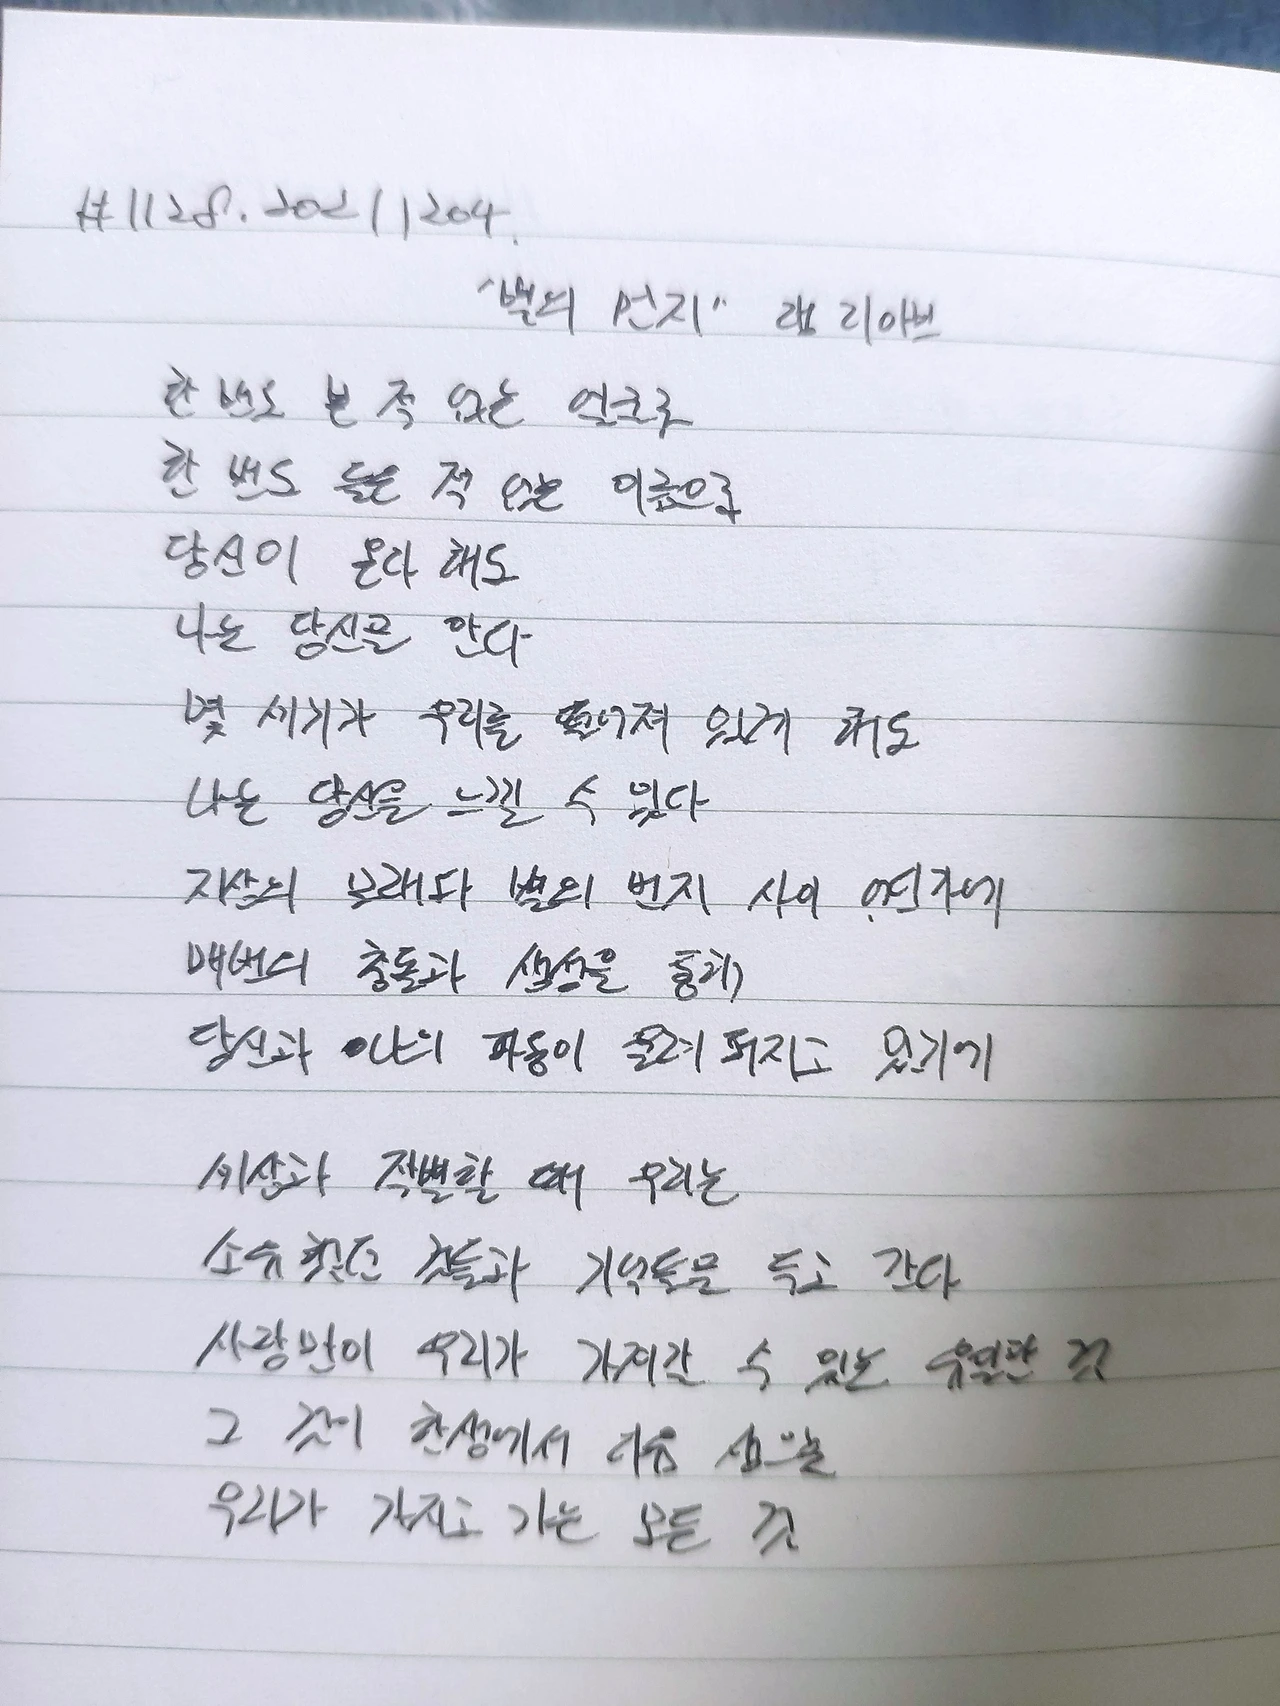 #1128. 20211204.
"별의 먼지" 랭 리아브
한 번도 본 적 없는 얼굴로
한 번도 들은 적 없는 이름으로
당신이 온다 해도
나는 당신을 안다
몇 세기가 우리를 떨어져 있게 해도
나는 당신을 느낄 수 있다
지상의 모래와 별의 먼지 사이 어딘가에
매번의 충돌과 생성을 통해
당신과 나의 파동이 울려 퍼지고 있기에
세상과 작별할 때 우리는
소유했던 것들과 기억들을 두고 간다
사랑만이 우리가 가져갈 수 있는 유일한 것
그 것이 한생에서 다음 생으로
우리가 가지고 가는 모든 것